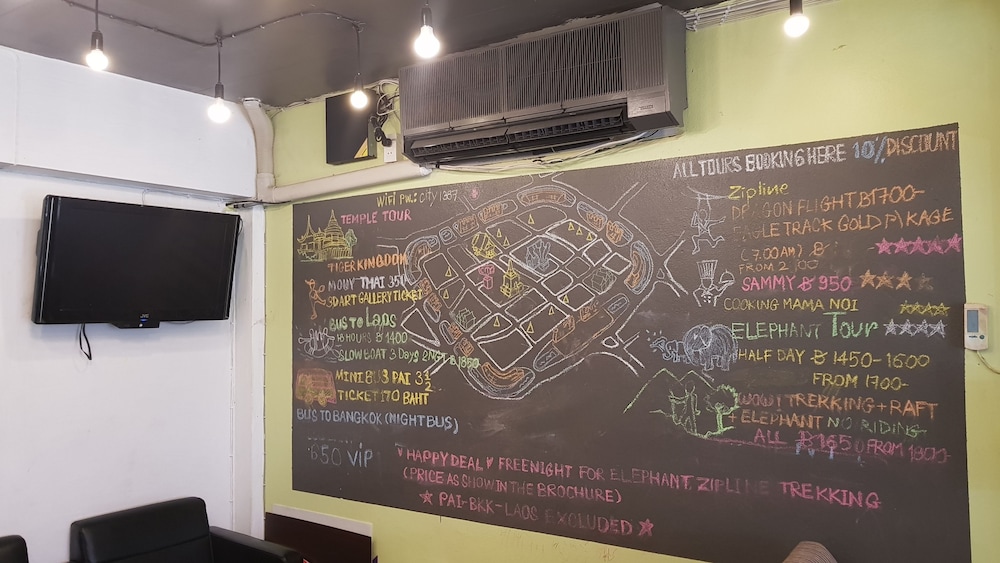 JVC
ALL TOURS BOOKING HERE 10% DISCOUNT
WiFi PW.: city 1387
TEMPLE TOUR
TIGER KINGDOM
MOUY THAI 350
3D ART GALLERY TICKET
BUS TO Laos
HOURS ฿ 1400
SLOW BOAT 3 Days 2 NGT ฿ 1850
MINI BUS PAI 3 1/2
TICKET 170 BAHT
BUS TO BANGKOK (NIGHT BUS)
650 VIP
Zipline
DRAGON FLIGHT ฿1700-
EAGLE TRACK GOLD PAKAGE
(7.00AM) ฿
FROM
SAMMY ฿ 950
COOKING MAMA NOI
ELEPHANT Tour
HALF DAY ฿ 1450-1600
FROM 1700-
TREKKING + RAFT
+ ELEPHANT NO RIDING
ALL ฿ 1650 FROM 1800-
HAPPY DEAL FREENIGHT FOR ELEPHANT, ZIPLINE TREKKING
(PRICE AS SHOW IN THE BROCHURE)
PAI-BKK-LAOS EXCLUDED